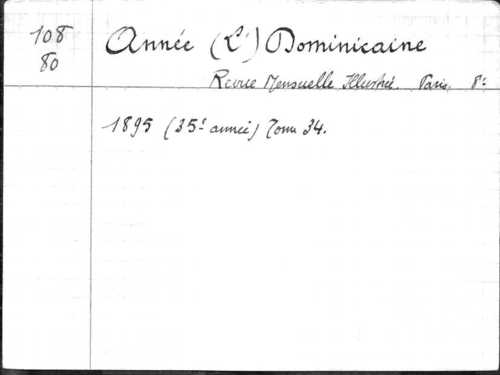 108
80
Année (L') Dominicaine
Revue Mensuelle Illustrée. Paris, 8º
1895 (35e année) Tome 34.